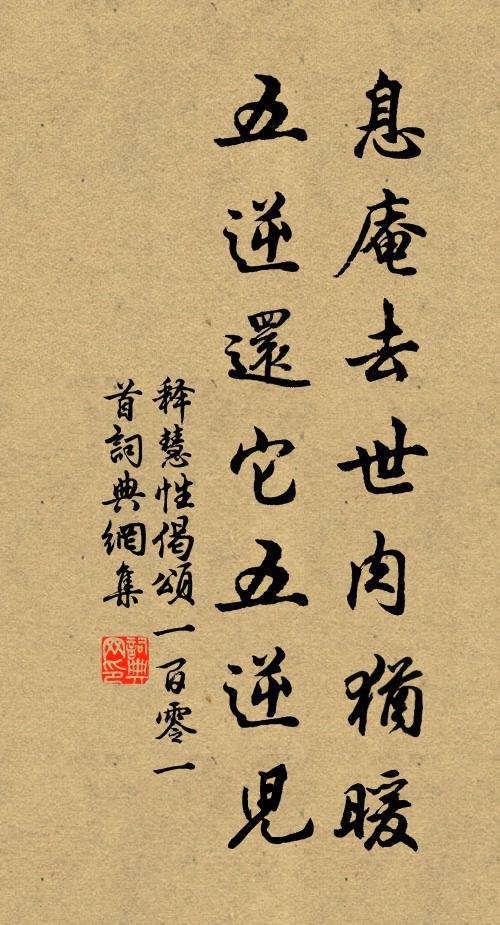 息庵去世肉猶暖
五逆還它五逆児
释慧性偈頌一百零一
首詞典網集
詞典
网印